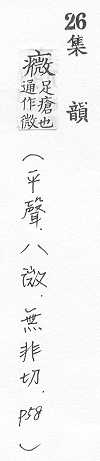 26集韻
癥足瘡也通作微
（平聲．八微．無非切．p58）